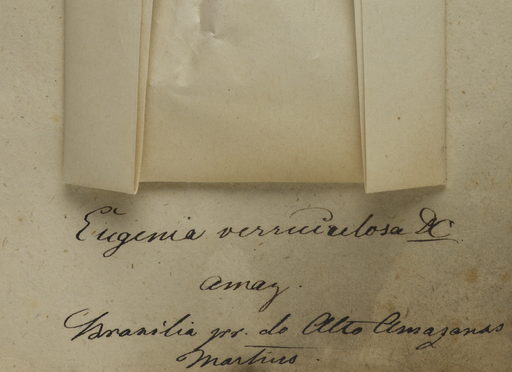 Eugenia verruculosa DC
amaz.
Brasilia pr. do Alto Amazonas
Martius.